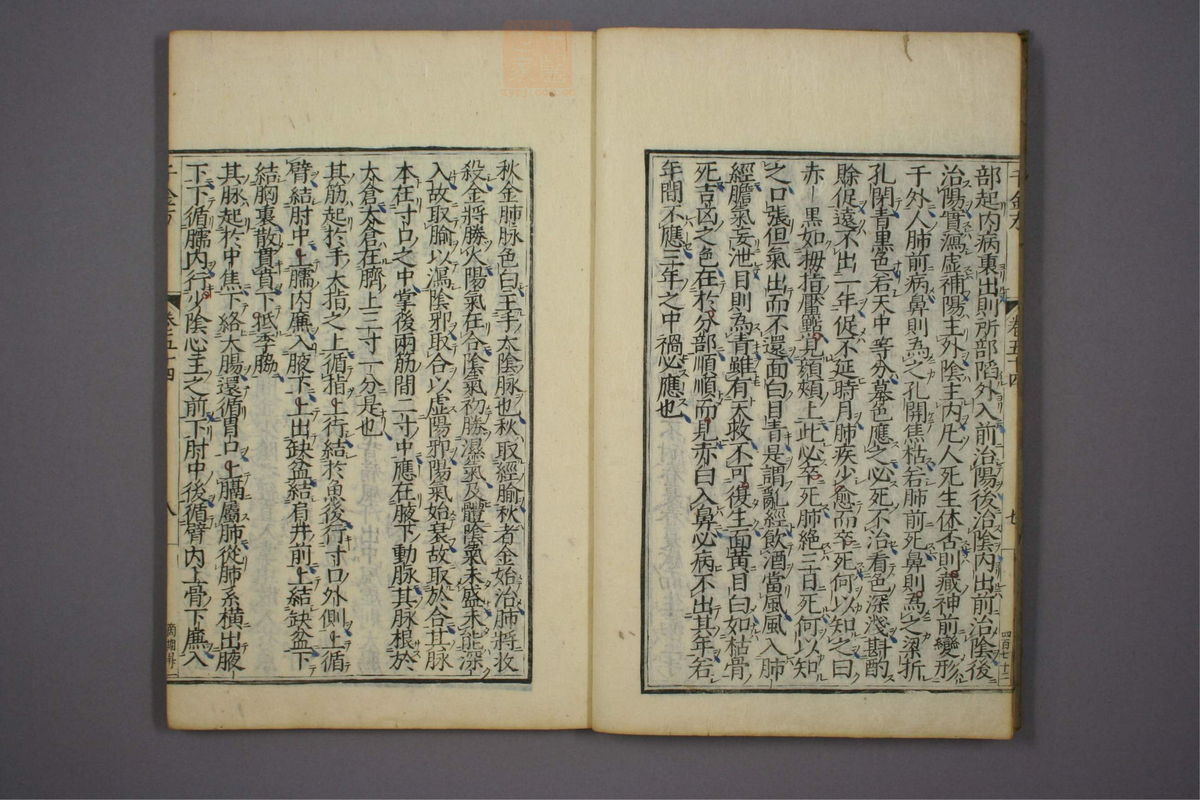 部起内病裏出則所部陷外入前治陽後治陰内出前治陰後
治陽實瀉虛補陽主外陰主内凡人死生休否則藏神前變形
于外人肺前病鼻則為之孔開焦枯若肺前死鼻則為之梁折
孔閉青黒色若天中等分墓色應之必死不治看色深淺斟酌
賖促遠不出一年促不延時月肺疾少愈而卒死何以知之曰
赤黒如拇指黶點見顔頰上此必卒死肺絶三日死何以知
之口張但氣出而不還面白目青是謂亂經飲酒當風風入肺
經膽氣妄泄目則為青雖有天救不可復生面黄目白如枯骨
死吉凶之色在於分部順順而見赤白入鼻必病不出其年若
年間不應三年之中禍必應也
千金方 卷五十四 七
秋金肺脉色白主手太陰脉也秋取經腧秋者金始治肺將收
殺金將勝火陽氣在合陰氣初勝濕氣及體陰氣未盛未能深
入故取腧以瀉陰邪取合以虛陽邪陽氣始衰故取於合其脉
本在寸口之中掌後兩筋間二寸中應在腋下動脉其脉根於
太倉太倉在臍上三寸一分是也
其筋起於手太指之上循指上行結於魚後行寸口外側上循
臂結肘中上臑内廉入腋下上出缺盆結肩井前上結缺盆下
結胸裏散貫賁下抵季脇
其脉起於中焦下絡大腸還循胃口上膈屬肺從肺系横出腋
下下循臑内行少陰心主之前下肘中後循臂内上骨下廉入
千金方 卷五十四 八